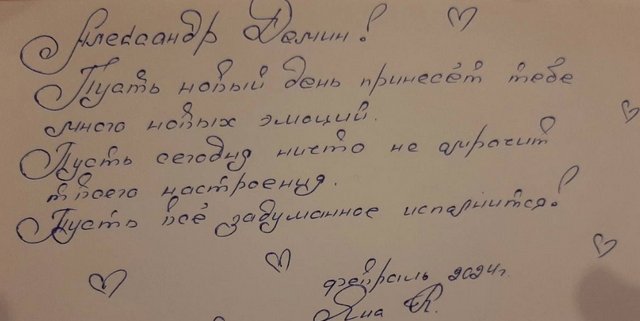 Александр Демин!
Пусть новый день принесёт тебе
много новых эмоций.
Пусть сегодня ничто не омрачит
твоего настроения.
Пусть всё задуманное исполнится!
февраль 2024г.
Яна К.